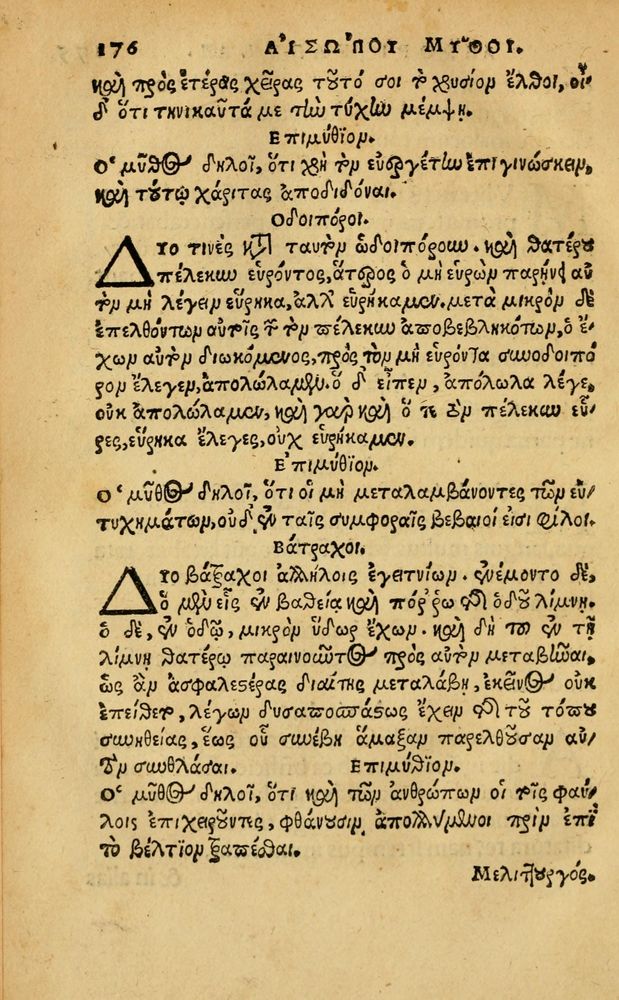 176 ΑΙΣΩΠΟΥ ΜΥΘΟΙ.
καὶ πρὸς ἑτέρας χεῖρας τοῦτό σοι τὸ χρυσίον ἔλθοι, οἶ/
δ' ὅτι τηνικαῦτά με τὴν τύχην μέμψῃ.
Ἐπιμύθιον.
Ὁ μῦθος δηλοῖ, ὅτι χρὴ τὸν εὐεργέτην ἐπιγινώσκειν,
καὶ τούτῳ χάριτας ἀποδιδόναι.
Ὁδοιπόροι.
Δύο τινὲς κατὰ ταυτὸν ὡδοιπόρουν. καὶ θατέρου
πέλεκυν εὑρόντος, ἅτερος ὁ μὴ εὑρὼν παρῄνει αὐ
τὸν μὴ λέγειν εὕρηκα, ἀλλ' εὑρήκαμεν. μετὰ μικρὸν δὲ
ἐπελθόντων αὐτοῖς τῶν τὸν πέλεκυν ἀποβεβληκότων, ὁ ἔ/
χων αὐτὸν διωκόμενος, πρὸς τὸν μὴ εὑρόντα συνοδοιπό
ρον ἔλεγεν, ἀπολώλαμεν. ὁ δ' εἶπεν, ἀπόλωλα λέγε,
οὐκ ἀπολώλαμεν, καὶ γὰρ καὶ ὅτε τὸν πέλεκυν εὗ/
ρες, εὕρηκα ἔλεγες, οὐχ εὑρήκαμεν.
Ἐπιμύθιον.
Ὁ μῦθος δηλοῖ, ὅτι οἱ μὴ μεταλαμβάνοντες τῶν εὐ/
τυχημάτων, οὐδ' ἐν ταῖς συμφοραῖς βέβαιοί εἰσι φίλοι.
Βάτραχοι.
Δύο βάτραχοι ἀλλήλοις ἐγειτνίων. ἐνέμοντο δὲ,
ὁ μὲν εἷς ἐν βαθείᾳ καὶ πόῤῥω τῆς ὁδοῦ λίμνῃ.
ὁ δὲ, ἐν ὁδῷ, μικρὸν ὕδωρ ἔχων. καὶ δὴ τοῦ ἐν τῇ
λίμνῃ θατέρῳ παραινοῦντος πρὸς αὐτὸν μεταβῆναι,
ὡς ἂν ἀσφαλεστέρας διαίτης μεταλάβῃ, ἐκεῖνος οὐκ
ἐπείθετο, λέγων δυσαποσπάστως ἔχειν τῆς τοῦ τόπου
συνηθείας, ἕως οὗ συνέβη ἅμαξαν παρελθοῦσαν αὐ/
τὸν συνθλάσαι. Ἐπιμύθιον.
Ὁ μῦθος δηλοῖ, ὅτι καὶ τῶν ἀνθρώπων οἱ τοῖς φαύ/
λοις ἐπιχειροῦντες, φθάνουσιν ἀπολλύμενοι πρὶν ἐπὶ
τὸ βέλτιον τραπέσθαι.
Μελιτουργός.